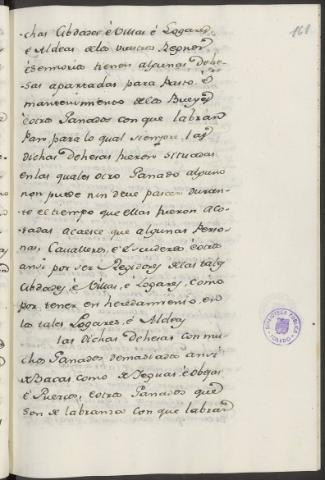 161
chas Cibdades é Villas é Logares,
é Aldeas delos vuestros Regnos,
é Senorios tienen algunas Dehe-
sas apartadas para Pasto é
mantenimiento delos Bueyes
é otros Ganados con que labran
Pan para lo qual siempre las
dichas dehesas fueron situadas
en las quales otro Ganado alguno
non puede nin deve pascer duran-
te el tiempo que ellas fueron aco-
tadas acaesce que algunas Perso-
nas, Cavalleros, é Escuderos é otros
ansi por ser Regidores delas tales
Cibdades é Villas, é Logares, como
por tener en heredamiento, en
los tales Logares, é Aldeas
las dichas Dehesas con mu-
chos Ganados demasiados ansi
de Bacas como de Yeguas é Obejas
é Puercos, é otros Ganados que
son de labranza con que labran
BIBLIOTECA PUBLICA
TOLEDO